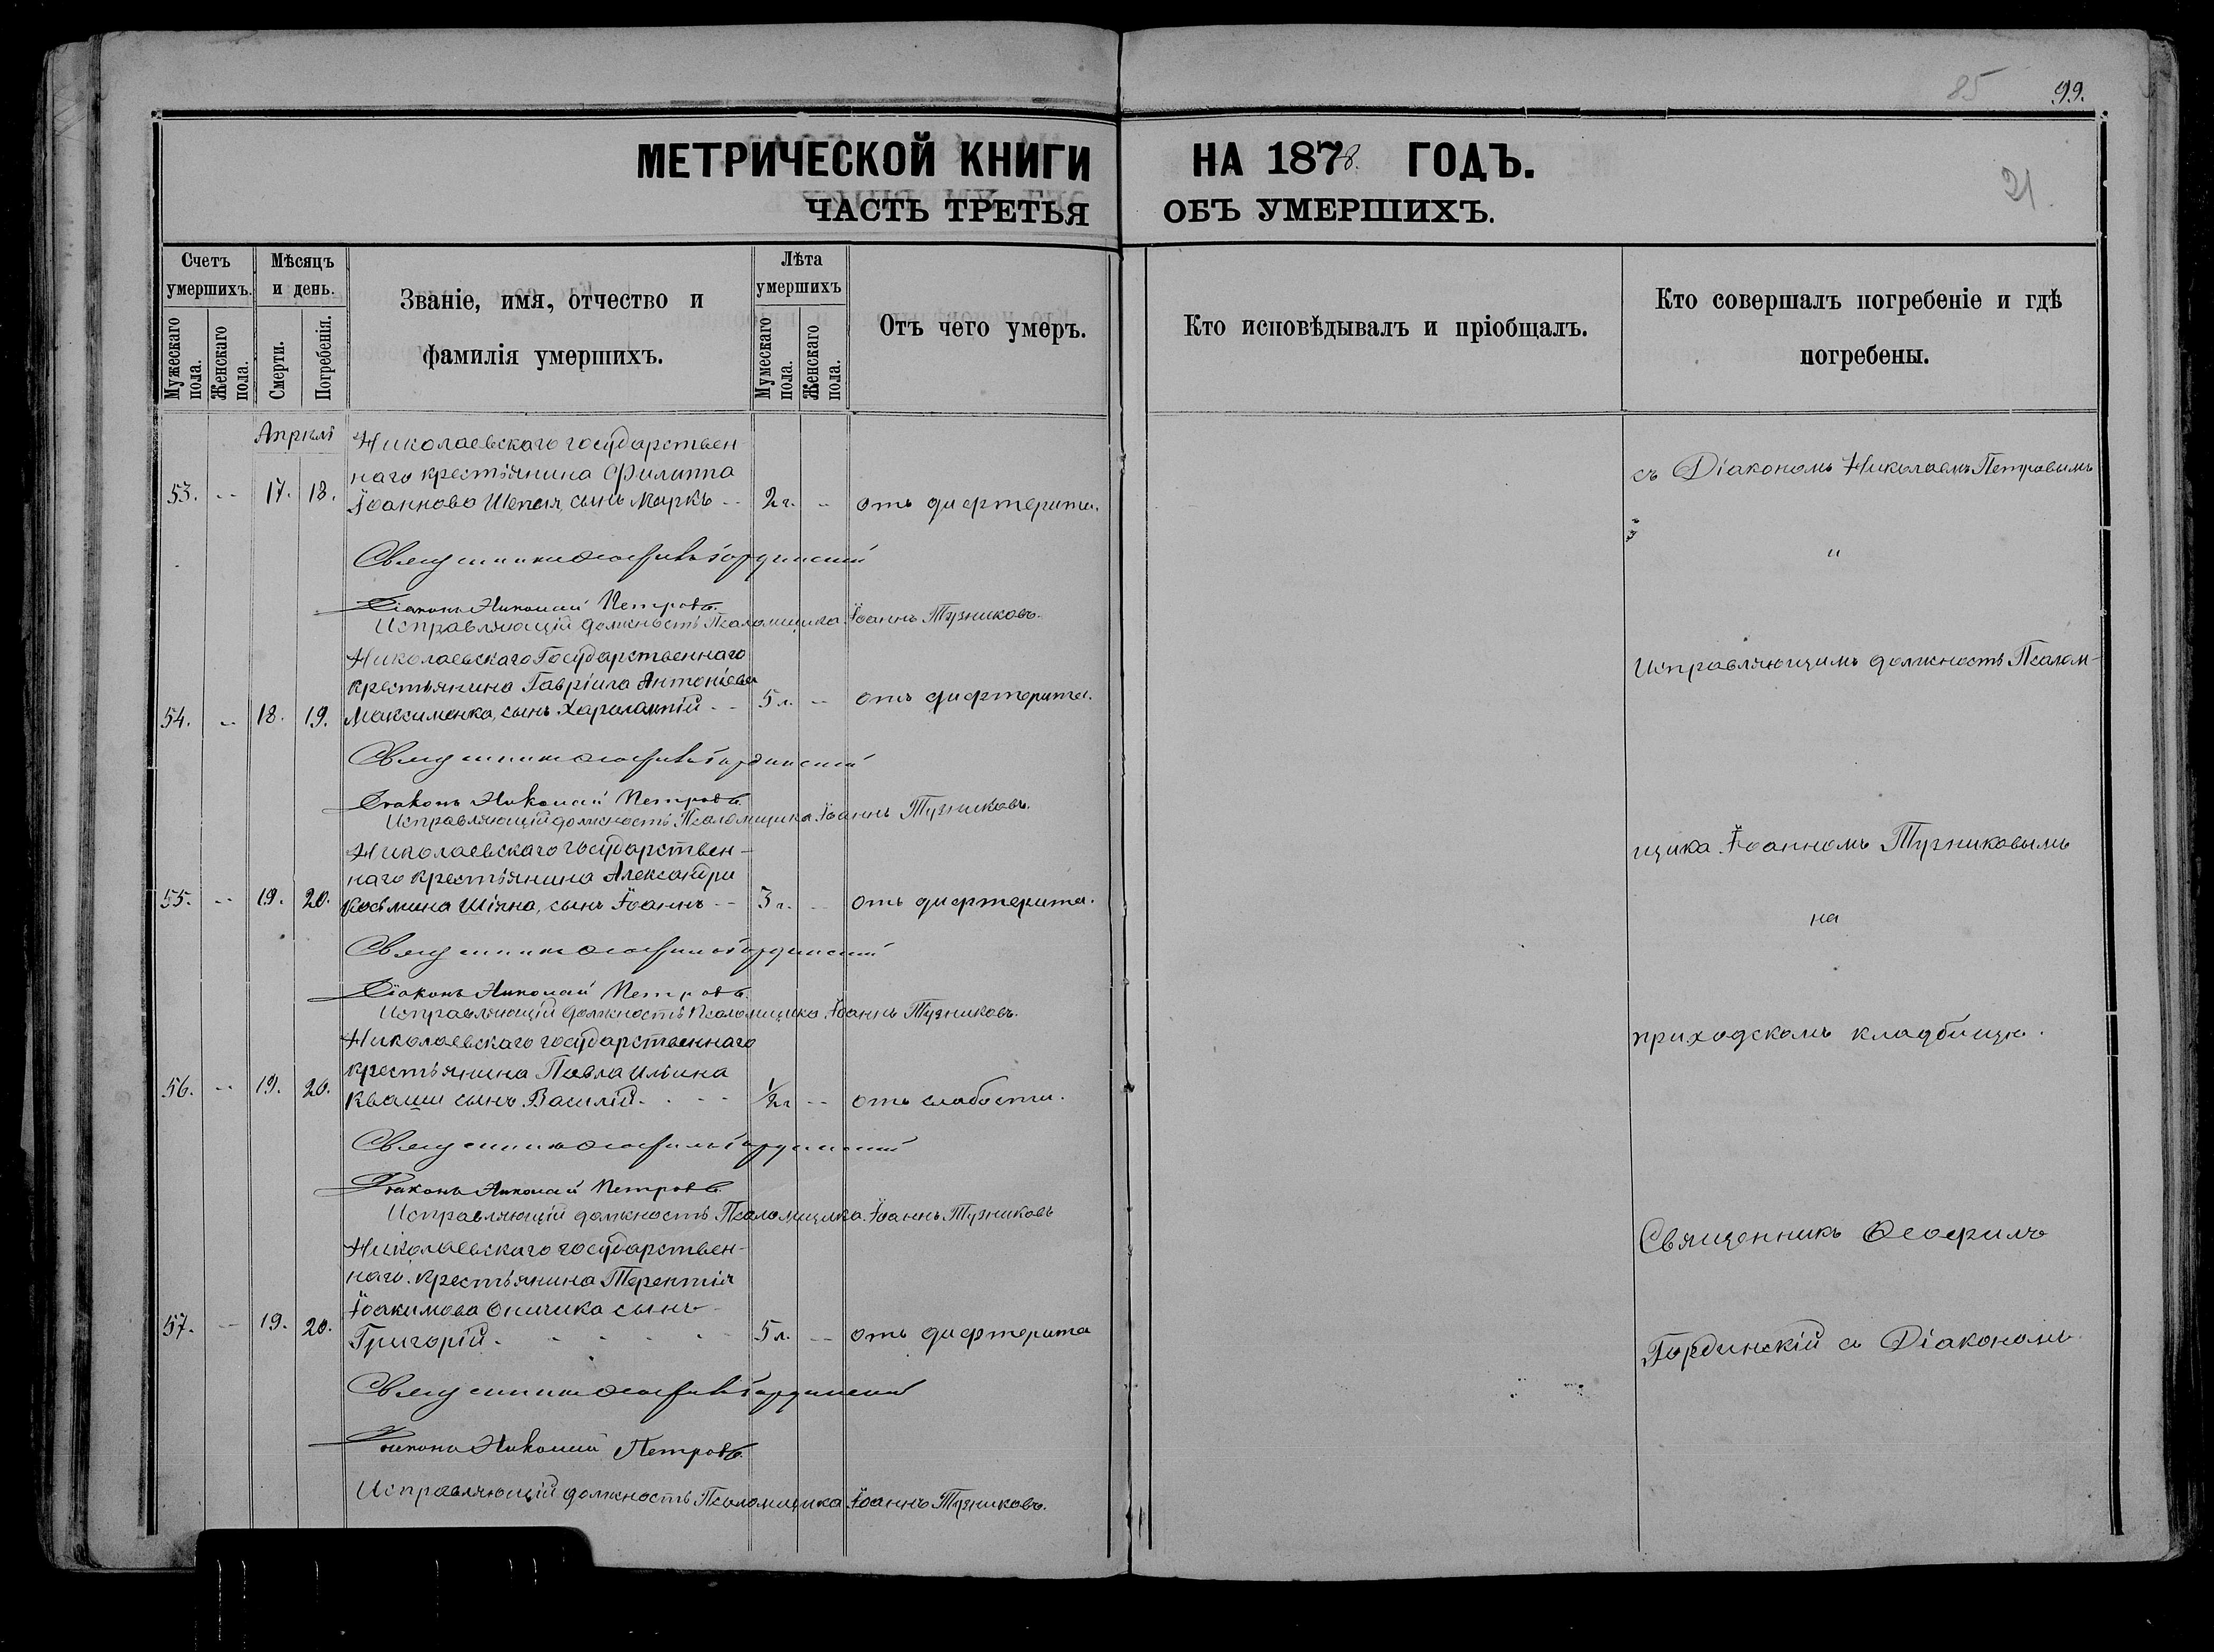 85
99.
МЕТРИЧЕСКОЙ КНИГИ НА 1878. ГОДЪ.
21.
ЧАСТЬ ТРЕТЬЯ ОБЪ УМЕРШИХЪ.
Счетъ умершихъ.
Мужескаго пола.
Женскаго пола.
Мѣсяцъ и день.
Смерти.
Погребенія.
Званіе, имя, отчество и
фамилія умершихъ.
Лѣта умершихъ
Мужескаго пола.
Женскаго пола.
Отъ чего умеръ.
Кто исповѣдывалъ и пріобщалъ.
Кто совершалъ погребеніе и гдѣ
погребены.
Апрѣля
Николаевскаго государствен-
наго крестьянина Филиппа
53. -- 17. 18. Іоаннова Шепеля, сынъ Маркъ -- 2 г. -- отъ дифтерита.
Священникъ Ѳеофилъ Гординскій
Діаконъ Николай Петровъ.
Исправляющій должность Псаломщика Іоаннъ Тузниковъ.
Николаевскаго Государственнаго
крестьянина Гавріила Антоніева
54. -- 18. 19. Максименка, сынъ Харалампій -- 5 л. -- отъ дифтерита.
Священникъ Ѳеофилъ Гординскій
Діаконъ Николай Петровъ.
Исправляющій должность Псаломщика Іоаннъ Тузниковъ.
Николаевскаго государствен-
наго крестьянина Александра
55. -- 19. 20. Косьмина Шіяна, сынъ Іоаннъ -- 3 г. -- отъ дифтерита.
Священникъ Ѳеофилъ Гординскій
Діаконъ Николай Петровъ.
Исправляющій должность Псаломщика Іоаннъ Тузниковъ.
Николаевскаго государственнаго
крестьянина Павла Ильина
56. -- 19. 20. Кваши сынъ Василій - - - 1/2 г -- отъ слабости.
Священникъ Ѳеофилъ Гординскій
Діаконъ Николай Петровъ.
Исправляющій должность Псаломщика Іоаннъ Тузниковъ
Николаевскаго государствен-
наго крестьянина Терентія
Іоакимова сынъ
57. -- 19. 20. Григорій - - - - - 5 л. -- отъ дифтерита
Священникъ Ѳеофилъ Гординскій
Діаконъ Николай Петровъ.
Исправляющій должность Псаломщика Іоаннъ Тузниковъ.
съ Діакономъ Николаемъ Петровымъ
и
Исправляющимъ должность Псалом-
щика Іоанномъ Тузниковымъ
на
приходскомъ кладбищѣ.
Священникъ Ѳеофилъ
Гординскій съ Діакономъ